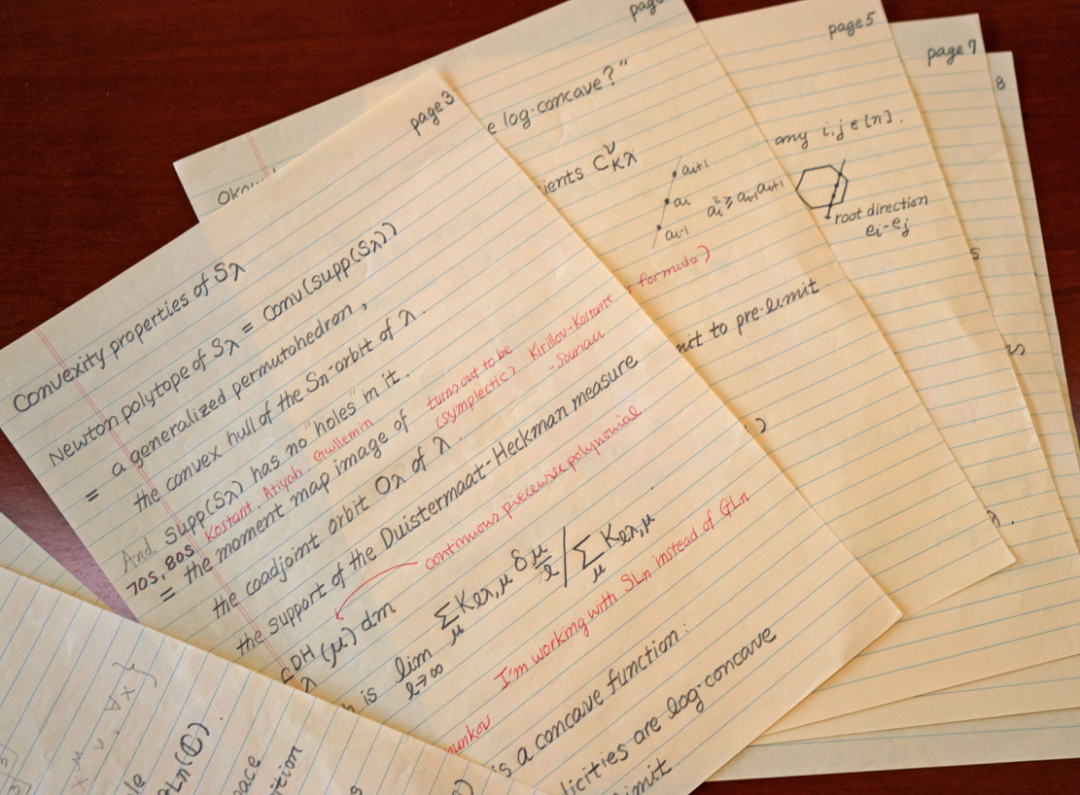 page 3
Convexity properties of Sλ
Newton polytope of Sλ = conv(supp(Sλ))
= a generalized permutohedron,
the convex hull of the Sn-orbit of λ.
And supp(Sλ) has no "holes" in it.
70s, 80s Kostant, Atiyah Guillemin
= the moment map image of turns out to be (symplectic) Kirillov-Kostant -Souriau
the coadjoint orbit Oλ of λ.
the support of the Duistermaat-Heckman measure
continuous piecewise polynomial
DH
λ (μ) dm
is lim ℓ→∞ Σμ Kℓλ,μ δ μ/ℓ / Σμ Kℓλ,μ
I'm working with SLn instead of GLn
unkov
is a concave function:
licities are log-concave
limit.
e log-concave?"
ients C^ν_κλ
ai+1
ai
ai-1
ai² ≥ ai-1 ai+1
formula)
mit to pre-limit
page 5
any i,j ∈ [n].
root direction
ei-ej
page 7
8
Ln(ℂ).
pace
ition